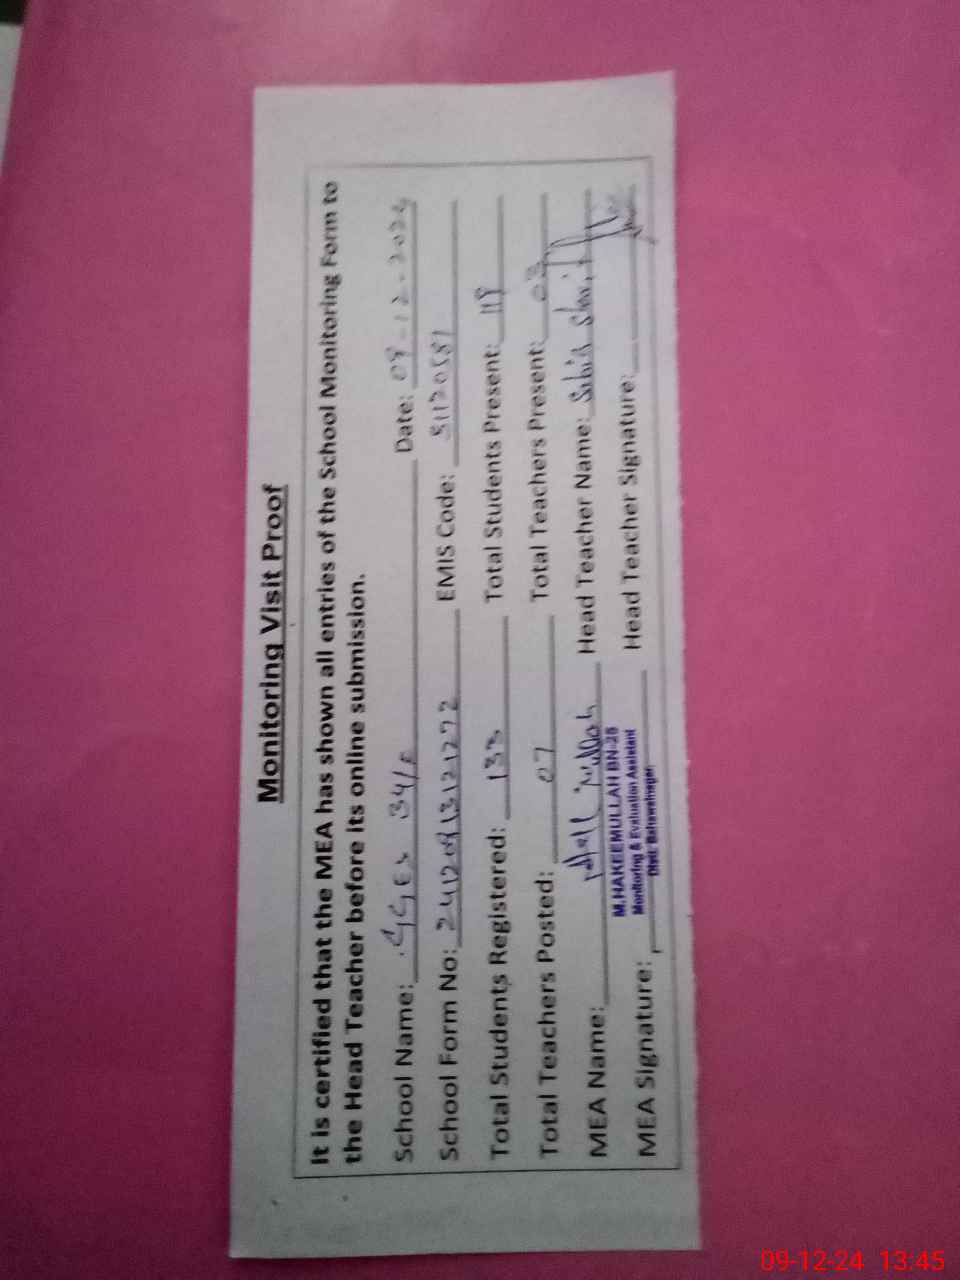 Monitoring Visit Proof
It is certified that the MEA has shown all entries of the School Monitoring Form to
the Head Teacher before its online submission.
School Name: GGES 34/ Date: 09-12-2024
School Form No: EMIS Code: 31120581
Total Students Registered: 133 Total Students Present: 118
Total Teachers Posted: 07 Total Teachers Present: 03
MEA Name: Head Teacher Name:
M.HAKEEMULLAH BN-25
Monitoring & Evaluation Assistant
Distt: Bahawalnagar
MEA Signature: Head Teacher Signature:
09-12-24 13:45